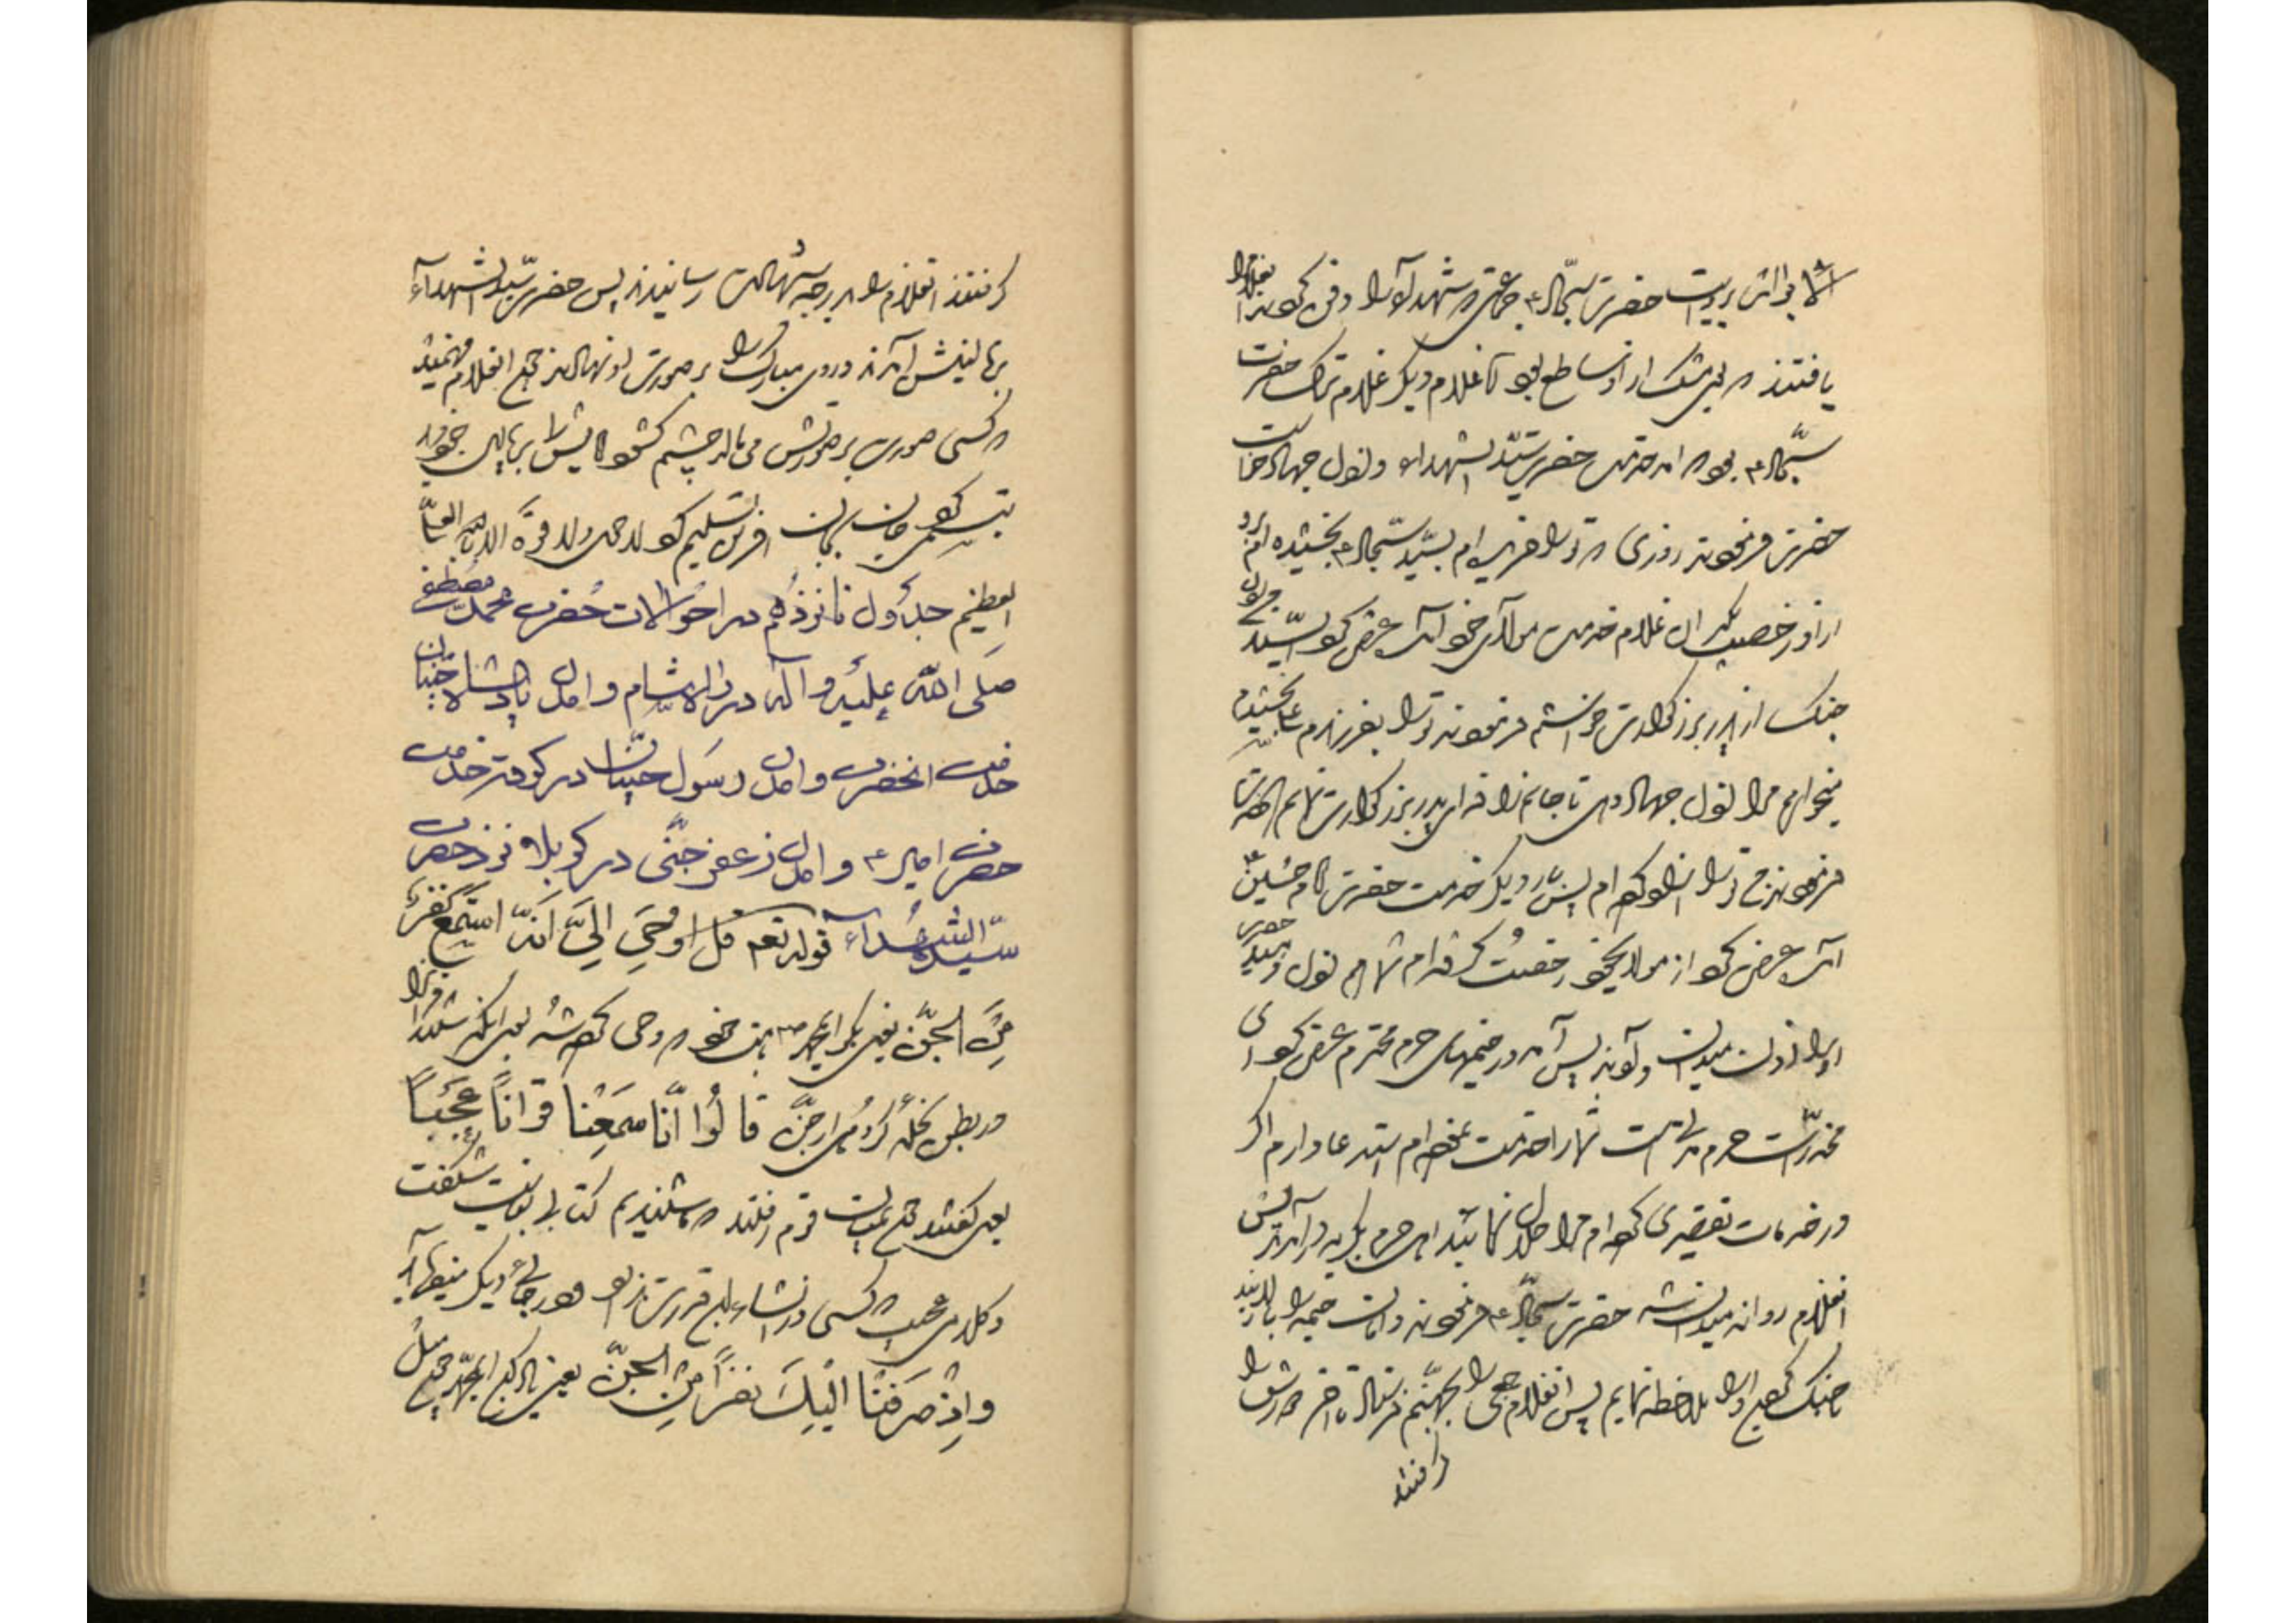 بروایت حضرت سجاد ع جماعتی که شهدا را دفن کردند
یافتند که بوی مشک از او ساطع بود غلام دیگر غلام ترک حضرت
سجّاد ع بود که آمد خدمت حضرت سیّد الشهداء و اذن جهاد خواست
حضرت فرمودند روزی که ترا خریدم بسیّد سجاد ع بخشیده ام برو
از او رخصت بگیر آن غلام خدمت مولای خود آمد عرض کرد سیّد
جنگ از پدر بزرگوارت خواستم فرمودند ترا بفرزندم بخشیدم
میخواهم مرا اذن جهاد دهی تا جانم را فدای پدر بزرگوارت نمایم
فرمودند من ترا آزاد کرده ام پس بار دیگر خدمت حضرت امام حسین ع
آمد عرض کرد از مولای خود رخصت گرفته ام شما هم اذن دهید حضرت
او را اذن میدان دادند پس آمد در خیمهای حرم محترم عرض کرد ای
مخدرات حرم مدتی است شما را خدمت نموده ام استدعا دارم اگر
در خدمات تقصیری کرده ام مرا حلال نمائید اهل حرم بگریه درآمدند پس
آنغلام روانه میدان شد حضرت سجاد ع فرمودند دامان خیمه را بالا زنید
تا جنگ کردن او را ملاحظه نمایم پس آنغلام جمعی را بجهنّم فرستاد تا آخر دورش را
گرفتند
گرفتند آنغلام را بدرجه شهادت رسانیدند پس حضرت سیّد الشهداء
ببالینش آمدند و روی مبارک را بر صورت او نهادند چون آنغلام فهمید
که کسی صورت بر صورتش می مالد چشم گشود امامش را ببالین خود دید
تبسمی کرد جان بجان آفرین تسلیم کرد لا حول و لا قوة الا بالله العلی
العظیم جلد اول نانزدهم در احوالات حضرت محمد مصطفی
صلی الله علیه و آله در راه شام و آمدن پادشاه جنیان
خدمت انحضرت و آمدن رسول جنیان در کوفه خدمت
حضرت امیر ع و آمدن زعفر جنّی در کربلا نزد حضرت
سیّد الشهداء قوله تعم قل اوحی الیّ انّه استمع نفر
من الجنّ یعنی بگو ایمحمد ص بامت خود که وحی کرده شد بمن اینکه شنیدند قرآن را
در بطن نخله گروهی از جنّ قالوا انّا سمعنا قراناً عجباً
یعنی گفتند چون بمیان قوم رفتند که ما شنیدیم کتابی بغایت شگفت
و کلامی عجب که کسی در انشاء این قدرت ندارد و در جای دیگر میفرماید
و اذ صرفنا الیک نفراً من الجنّ یعنی یاد کن ایمحمد چون میل